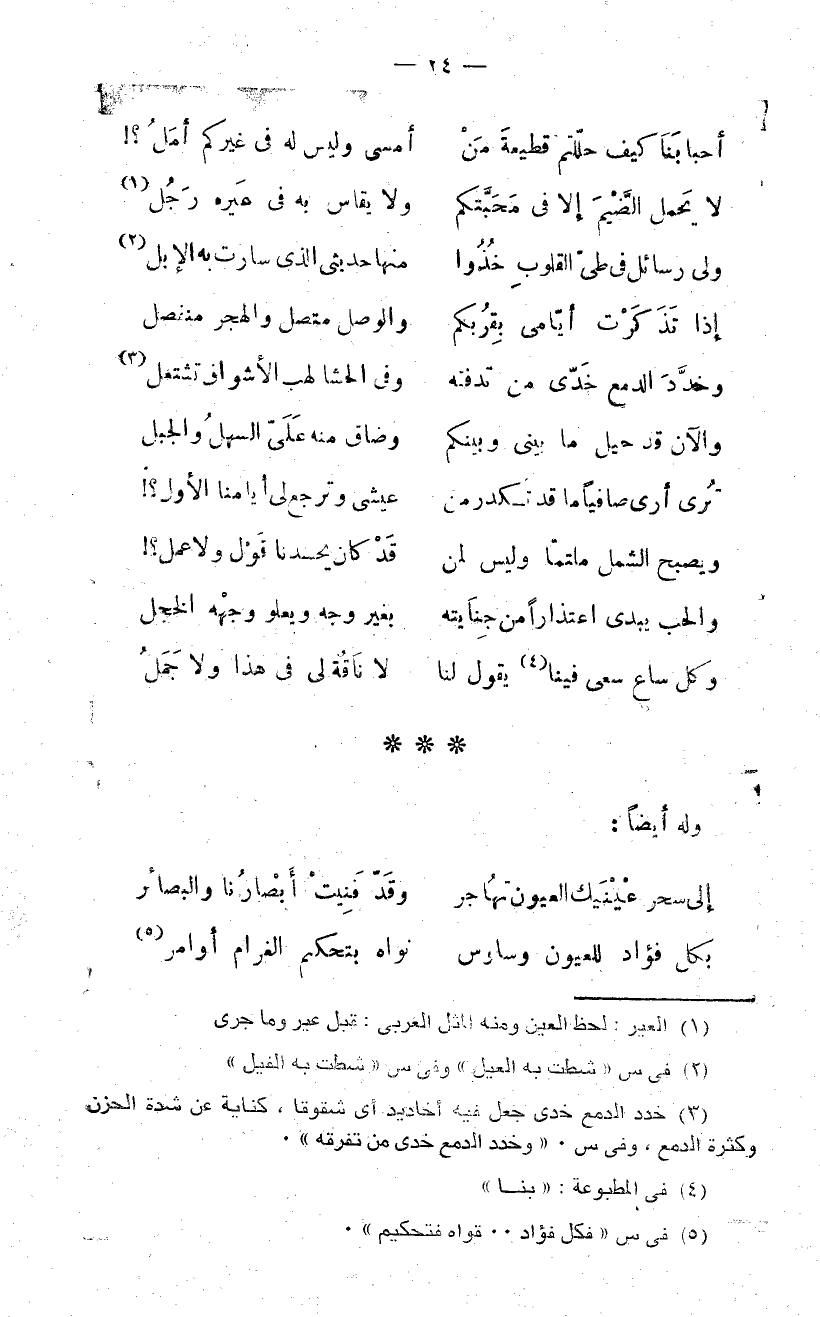 — ٢٤ —
أحبابَنَا كيف حلّلتم قطيعةَ مَنْ أمسى وليس له فى غيركم أمَلُ ؟!
لا يَحمل الضَّيْمَ إلا فى مَحَبَّتكم ولا يقاس به فى عَيره رَجُل (١)
ولى رسائل فى طىّ القلوبِ خُذُوا منها حديثى الذى سارت به الإبل (٢)
إذا تَذَكَرْت أيّامى بِقُربكم والوصل متصل والهجر منفصل
وخدَّدَ الدمع خَدّى من تدفقه وفى الحشا لهب الأشواق تشتعل (٣)
والآن قد حيل ما بينى وبينكم وضاق منه عَلَىّ السهلُ والجبل
تُرى أرى صافياً ما قد تكدر من عيشى وترجع لى أيامنا الأول ؟!
ويصبح الشمل ملتمّا وليس لمن قَدْ كان يحسدنا قَوْل ولا عمل ؟!
والحب يبدى اعتذاراً من جِنَايته بغير وجه ويعلو وجْهه الخجل
وكل ساع سعى فينا (٤) يقول لنا لا نَاقَةُ لى فى هذا ولا جَمَلُ
* * *
وله أيضاً :
إلى سحر عْيْنَيك العيون تُهاجر وقَدّ فَنِيتْ أَبْصارُنا والبصائر
بكل فؤاد للعيون وساوس نواه بتحكيم الغرام أوامر (٥)
(١) العير : لحظ العين ومنه المثل العربى : قبل عير وما جرى
(٢) فى س « شطت به العيل » وفى س « شطت به الفيل »
(٣) خدد الدمع خدى جعل فيه أخاديد أى شقوقا ، كناية عن شدة الحزن
وكثرة الدمع ، وفى س ٠ « وخدد الدمع خدى من تفرقه » ٠
(٤) فى المطبوعة : « بنــا »
(٥) فى س « فكل فؤاد ٠٠ قواه فتحكيم » ٠